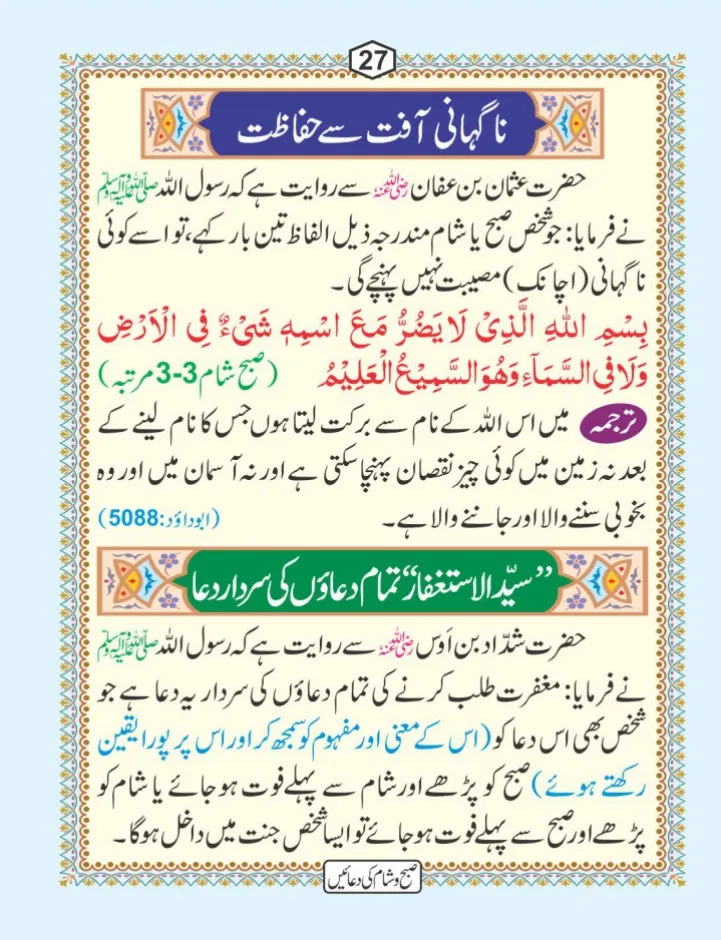 27
ناگہانی آفت سے حفاظت
حضرت عثمان بن عفان رضی اللہ عنہ سے روایت ہے کہ رسول اللہ صلی اللہ علیہ وآلہ وسلم
نے فرمایا: جو شخص صبح یا شام مندرجہ ذیل الفاظ تین بار کہے، تو اسے کوئی
ناگہانی (اچانک) مصیبت نہیں پہنچے گی۔
بِسْمِ اللهِ الَّذِیْ لَا یَضُرُّ مَعَ اسْمِهٖ شَیْءٌ فِی الْاَرْضِ
وَلَا فِی السَّمَآءِ وَهُوَ السَّمِیْعُ الْعَلِیْمُ (صبح شام 3-3 مرتبہ)
ترجمہ میں اس اللہ کے نام سے برکت لیتا ہوں جس کا نام لینے کے
بعد نہ زمین میں کوئی چیز نقصان پہنچا سکتی ہے اور نہ آسمان میں اور وہ
بخوبی سننے والا اور جاننے والا ہے۔ (ابوداؤد: 5088)
”سیّد الاستغفار“ تمام دعاؤں کی سردار دعا
حضرت شدّاد بن اَوس رضی اللہ عنہ سے روایت ہے کہ رسول اللہ صلی اللہ علیہ وآلہ وسلم
نے فرمایا: مغفرت طلب کرنے کی تمام دعاؤں کی سردار یہ دعا ہے جو
شخص بھی اس دعا کو (اس کے معنی اور مفہوم کو سمجھ کر اور اس پر پورا یقین
رکھتے ہوئے) صبح کو پڑھے اور شام سے پہلے فوت ہو جائے یا شام کو
پڑھے اور صبح سے پہلے فوت ہو جائے تو ایسا شخص جنت میں داخل ہوگا۔
صبح و شام کی دعائیں